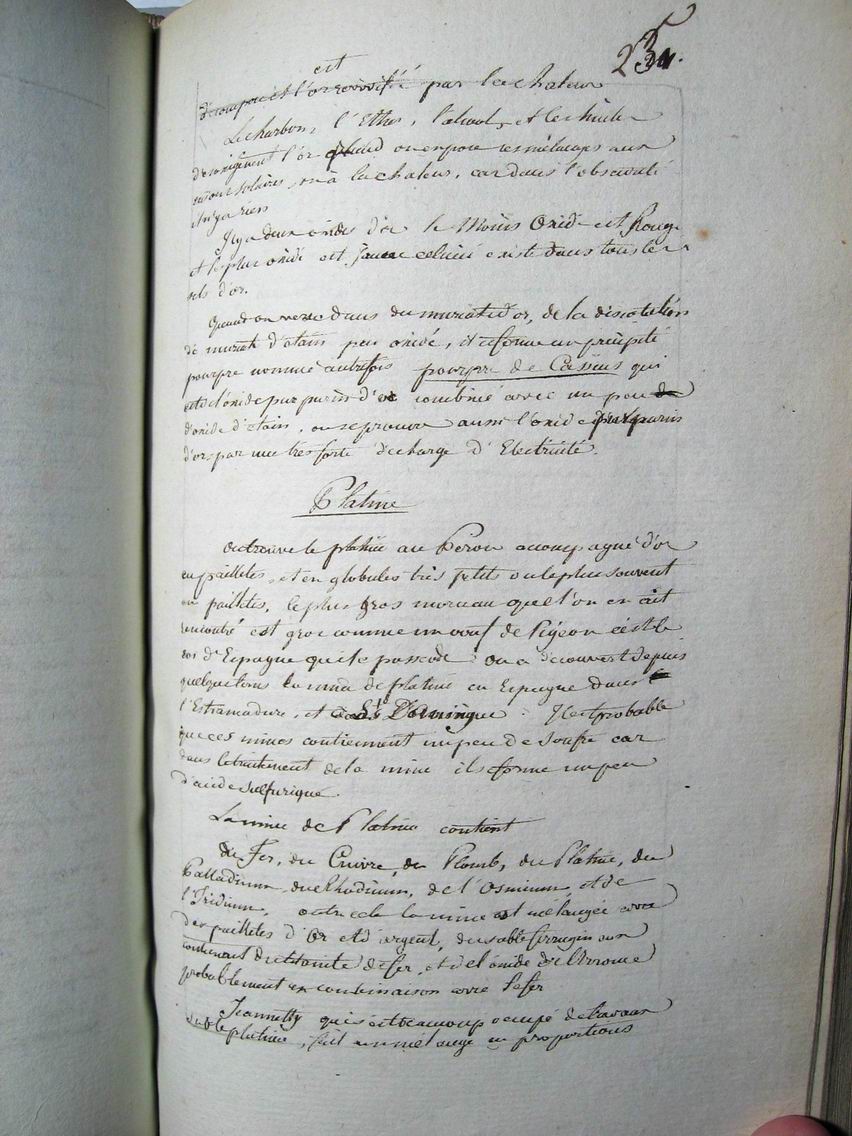 est
décomposé et l'or revivifié par la chaleur
Le charbon, l'Ether, l'alcool, et les huiles
désoxigènent l'or quand on expose ces mélanges aux
rayons solaires, ou à la chaleur, car dans l'obscurité
il n'y a rien
Il y a deux oxides d'or le Moins Oxidé est Rouge
et le plus oxidé est jaune celui ci existe dans tous les
sels d'or.
Quand on verse dans du muriate d'or, de la dissolution
de muriate d'étain peu oxidé, il se forme un précipité
pourpre nommé autrefois pourpre de Cassius qui
est de l'oxide purpurin d'or combiné avec un peu de
d'oxide d'étain. on se procure aussi l'oxide purpurin
d'or par une tres forte décharge d'Electricité.
Platine
On trouve le platine au Pérou accompagné d'or
en paillettes, et en globules très petits ou le plus souvent
en paillettes, le plus gros morceau que l'on en ait
rencontré est gros comme un oeuf de Pigeon c'est le
roi d'Espagne qui le possède. on a découvert depuis
quelque tems la mine de platine en Espagne dans
l'Estramadure, et à St. Domingue. Il est probable
que ces mines contiennent un peu de soufre car
dans le traitement de la mine il se forme un peu
d'acide sulfurique.
La mine de Platine contient
du Fer, du Cuivre, du Plomb, du Platine, du
Palladium, du Rhodium, de l'Osmium et de
l'Iridium, outre cela la mine est mélangée avec
des paillettes d'Or et d'argent, du sable ferrugineux
contenant du titanite de fer, et de l'oxide de Chrome
probablement en combinaison avec le fer
Jeannetty qui s'est beaucoup occupé de travaux
sur le platine, fait un mélange en proportions